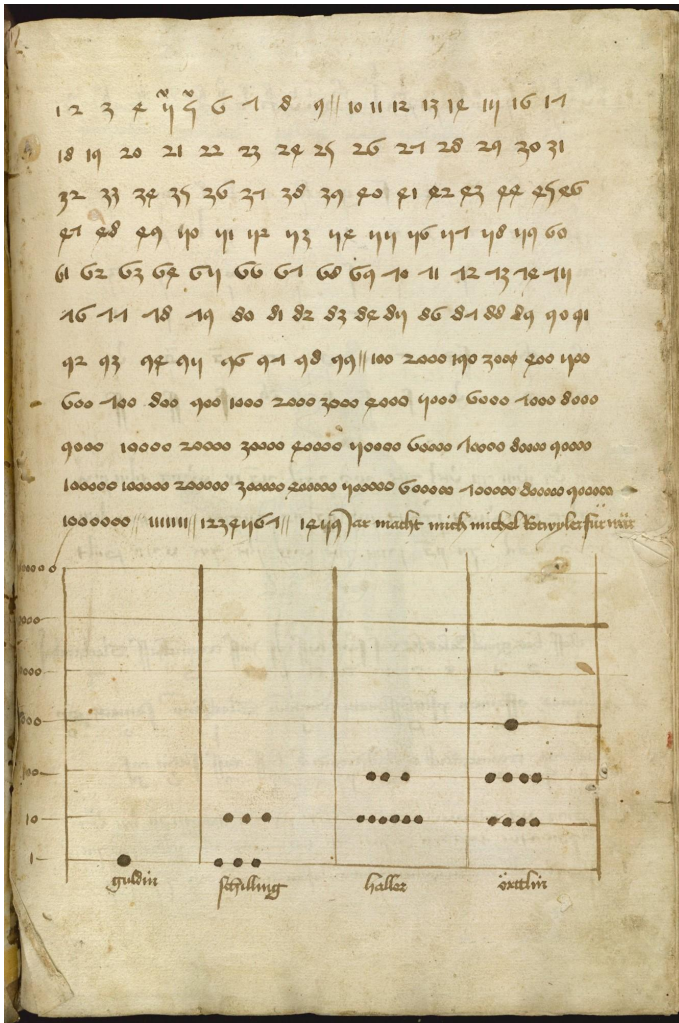 1 2 3 4 5 5 6 7 8 9 || 10 11 12 13 14 15 16 17
18 19 20 21 22 23 24 25 26 27 28 29 30 31
32 33 34 35 36 37 38 39 40 41 42 43 44 45 46
47 48 49 50 51 52 53 54 55 56 57 58 59 60
61 62 63 64 65 66 67 68 69 70 71 72 73 74 75
76 77 78 79 80 81 82 83 84 85 86 87 88 89 90 91
92 93 94 95 96 97 98 99 || 100 2000 190 3000 400 500
600 700 800 900 1000 2000 3000 4000 5000 6000 7000 8000
9000 10000 20000 30000 40000 50000 60000 70000 80000 90000
100000 100000 200000 300000 400000 500000 600000 700000 800000 900000
1000000 || 1111111 || 1234567 || 1459 Jar macht mich michel Rotwyler für war
100
10
1
guldin schilling haller örttlin